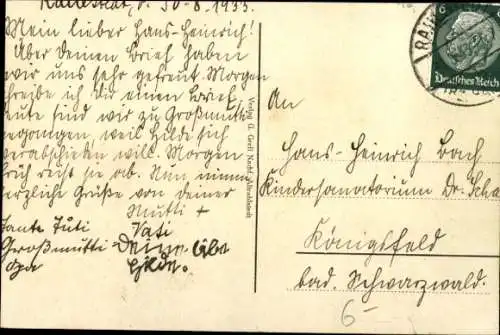 Rahlstedt, d. 30.8.1933.
Mein lieber Hans-Heinrich!
Über deinen Brief haben
wir uns sehr gefreut. Morgen
schreibe ich dir einen Brief,
heute sind wir zu Großmutti
gegangen, weil Hilde sich
verabschieden will. Morgen
früh reist sie ab. Nun nimm
herzliche Grüße von deiner
Mutti +
Tante Juti Vati
Großmutti Deine liebe
Opa Hilde.
Verlag G. Greß Nachf. Altrahlstedt
RAHLS
6
Deutsches Reich
An
Hans-Heinrich Bach
Kindersanatorium Dr. Scha
Königsfeld
bad. Schwarzwald.
6-